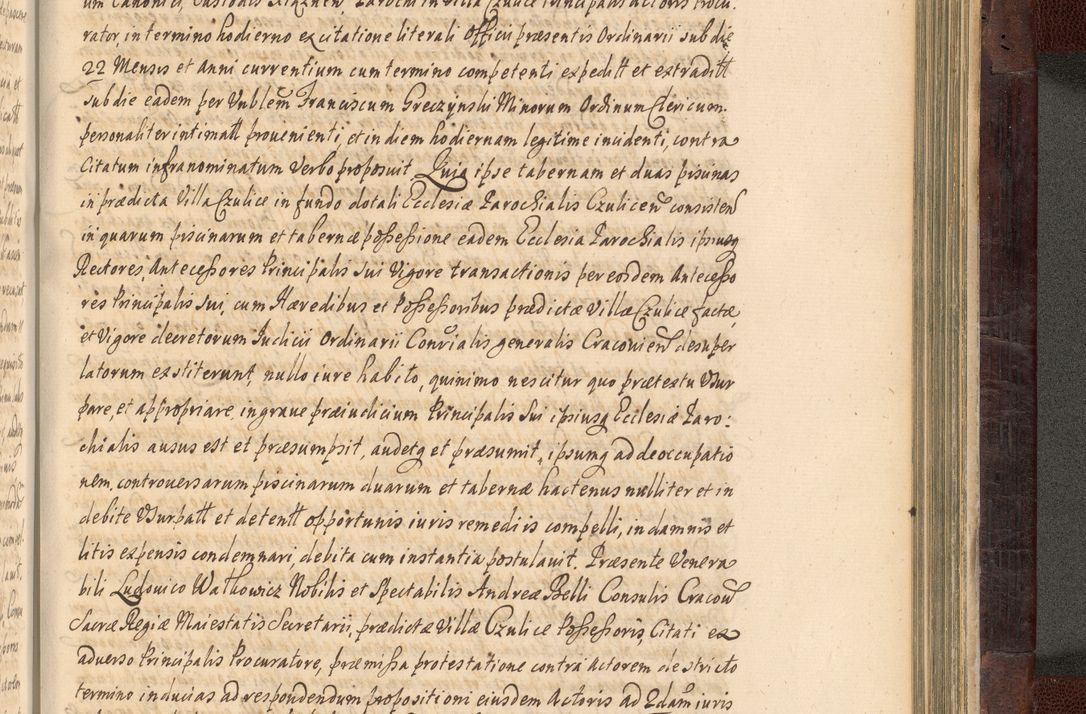 um Canonici, Custodis Parochi in Villa Czulice Principalis actoris Procu:
rator, in termino hodierno ex citatione literali Officii præsentis Ordinarii sub die
22 Mensis et Anni currentium cum termino competenti expeditt et extraditt
sub die eadem per Vnblem Franciscum Greczynski Minorum Ordinum Clericum
personaliter intimatt prouenienti, et in diem hodiernam legitime incidenti, contra
Citatum infranominatum Verbo proposuit. Quia ipse tabernam et duas piscinas
in prædicta Villa Czulice in fundo dotali Ecclesiæ Parochialis Czulicen consisten
in quarum piscinarum et tabernæ possessione eadem Ecclesia Parochialis ipsiusq
Rectores, Antecessores Principalis sui Vigore transactionis per eosdem Antecesso
res Principalis sui, cum Hæredibus et Possessoribus prædictæ Villæ Czulice factæ,
et Vigore decretorum Iudicii Ordinarii Convialis generalis Cracouien desuper
latorum exstiterunt, nullo iure habito, quinimo nescitur quo prætextu Vsur
pare, et appropriare, in graue præiudicium Principalis Sui ipsiusq Ecclesiæ Paro:
chialis ausus est et præsumpsit, audetq et præsumit, ipsumq ad deoccupatio
nem controuersarum piscinarum duarum et tabernæ hactenus nulliter et in
debite Vsurpatt et detentt opportunis iuris remediis compelli, in damnis et
litis expensis condemnari, debita cum instantia postulauit. Præsente Venera
bili Ludouico Watkowicz Nobilis et Spectabilis Andreæ Belli Consulis Cracouien
Sacræ Regiæ Maiestatis Secretarii, prædictæ Villæ Czulice Possessoris, Citati ex
aduerso Principalis Procuratore, præmissa protestatione contra Actorem de stricto
termino inducias ad respondendum propositioni eiusdem Actoris ad Edam iuris